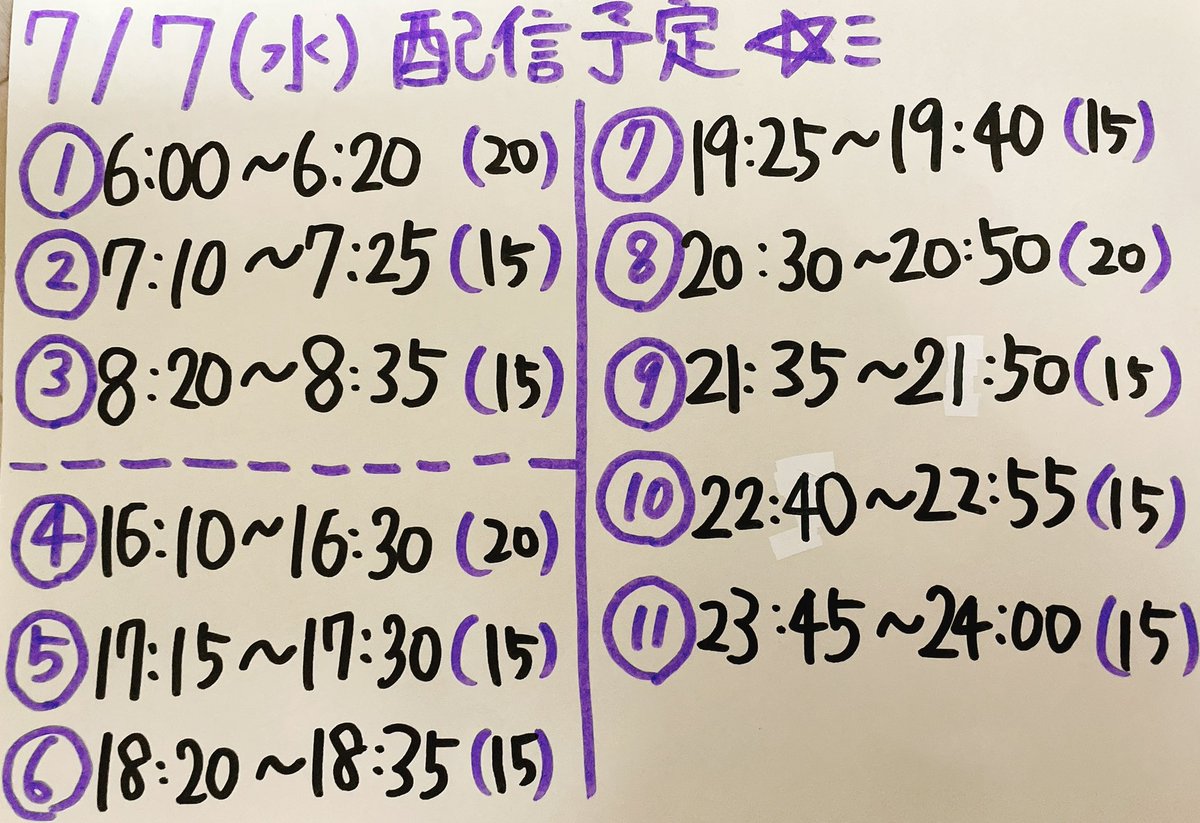 7/7(水) 配信予定
① 6:00~6:20 (20)
② 7:10~7:25 (15)
③ 8:20~8:35 (15)
④ 16:10~16:30 (20)
⑤ 17:15~17:30 (15)
⑥ 18:20~18:35 (15)
⑦ 19:25~19:40 (15)
⑧ 20:30~20:50 (20)
⑨ 21:35~21:50 (15)
⑩ 22:40~22:55 (15)
⑪ 23:45~24:00 (15)